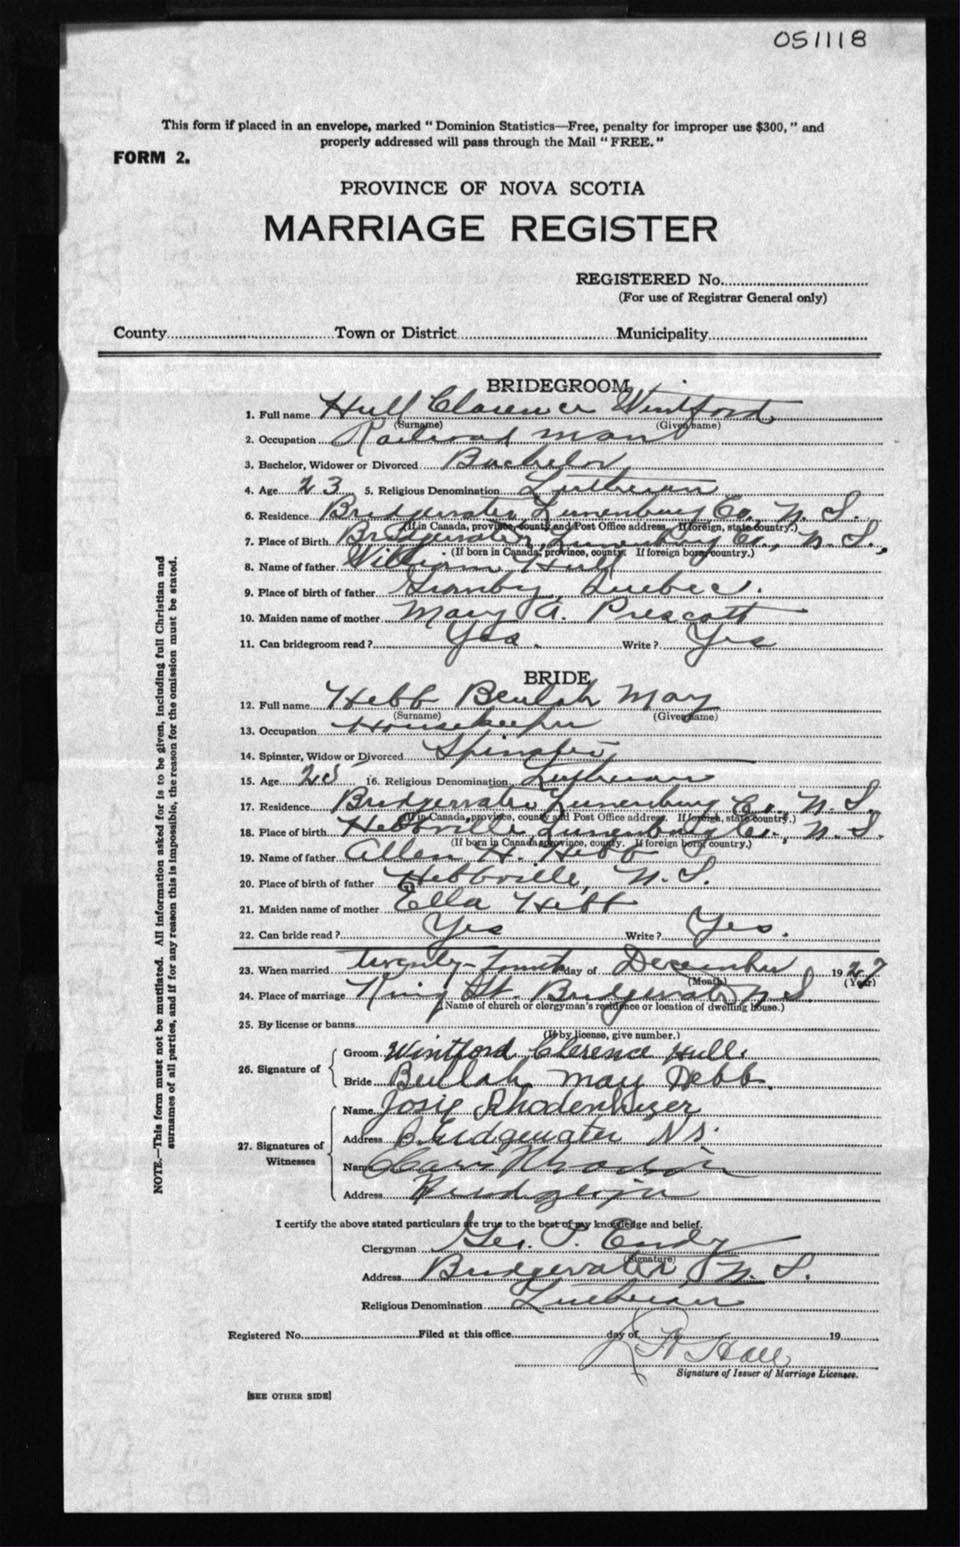 051118
This form if placed in an envelope, marked "Dominion Statistics—Free, penalty for improper use $300," and
properly addressed will pass through the Mail "FREE."
FORM 2.
PROVINCE OF NOVA SCOTIA
MARRIAGE REGISTER
REGISTERED No.
(For use of Registrar General only)
County Town or District Municipality
BRIDEGROOM
1. Full name Hull Clarence Wintford
(Surname) (Given name)
2. Occupation Railroad man
3. Bachelor, Widower or Divorced Bachelor
4. Age 23 5. Religious Denomination Lutheran
6. Residence Bridgewater Lunenburg Co., N. S.
(If in Canada, province, county and Post Office address. If foreign, state country.)
7. Place of Birth Bridgewater, Lunenburg Co., N. S.,
(If born in Canada, province, county. If foreign born, country.)
8. Name of father William Hull
9. Place of birth of father Granby, Quebec.
10. Maiden name of mother Mary A. Prescott
11. Can bridegroom read? Yes. Write? Yes
BRIDE
12. Full name Hebb Beulah May
(Surname) (Given name)
13. Occupation Housekeeper
14. Spinster, Widow or Divorced Spinster
15. Age 16. Religious Denomination Lutheran
17. Residence Bridgewater Lunenburg Co., N. S.
(If in Canada, province, county and Post Office address. If foreign, state country.)
18. Place of birth Hebbville Lunenburg Co., N. S.
(If born in Canada province, county. If foreign born, country.)
19. Name of father Allen H. Hebb
20. Place of birth of father Hebbville, N. S.
21. Maiden name of mother Ella Hebb
22. Can bride read? Yes Write? Yes.
23. When married twenty-fourth day of December 1927
(Month) (Year)
24. Place of marriage King St. Bridgewater N S.
(Name of church or clergyman's residence or location of dwelling house.)
25. By license or banns
(If by license, give number.)
26. Signature of
Groom Wintford Clerence Hull.
Bride Beulah May Hebb.
27. Signatures of Witnesses
Name Josie Rhodenhizer
Address Bridgewater N.S.
Name
Address
I certify the above stated particulars are true to the best of my knowledge and belief.
Clergyman Geo. P. Endy
(Signature)
Address Bridgewater, N. S.
Religious Denomination Lutheran
Registered No. Filed at this office day of 19
Hall
Signature of Issuer of Marriage Licenses.
[SEE OTHER SIDE]
NOTE.—This form must not be mutilated. All information asked for is to be given, including full Christian and
surnames of all parties, and if for any reason this is impossible, the reason for the omission must be stated.